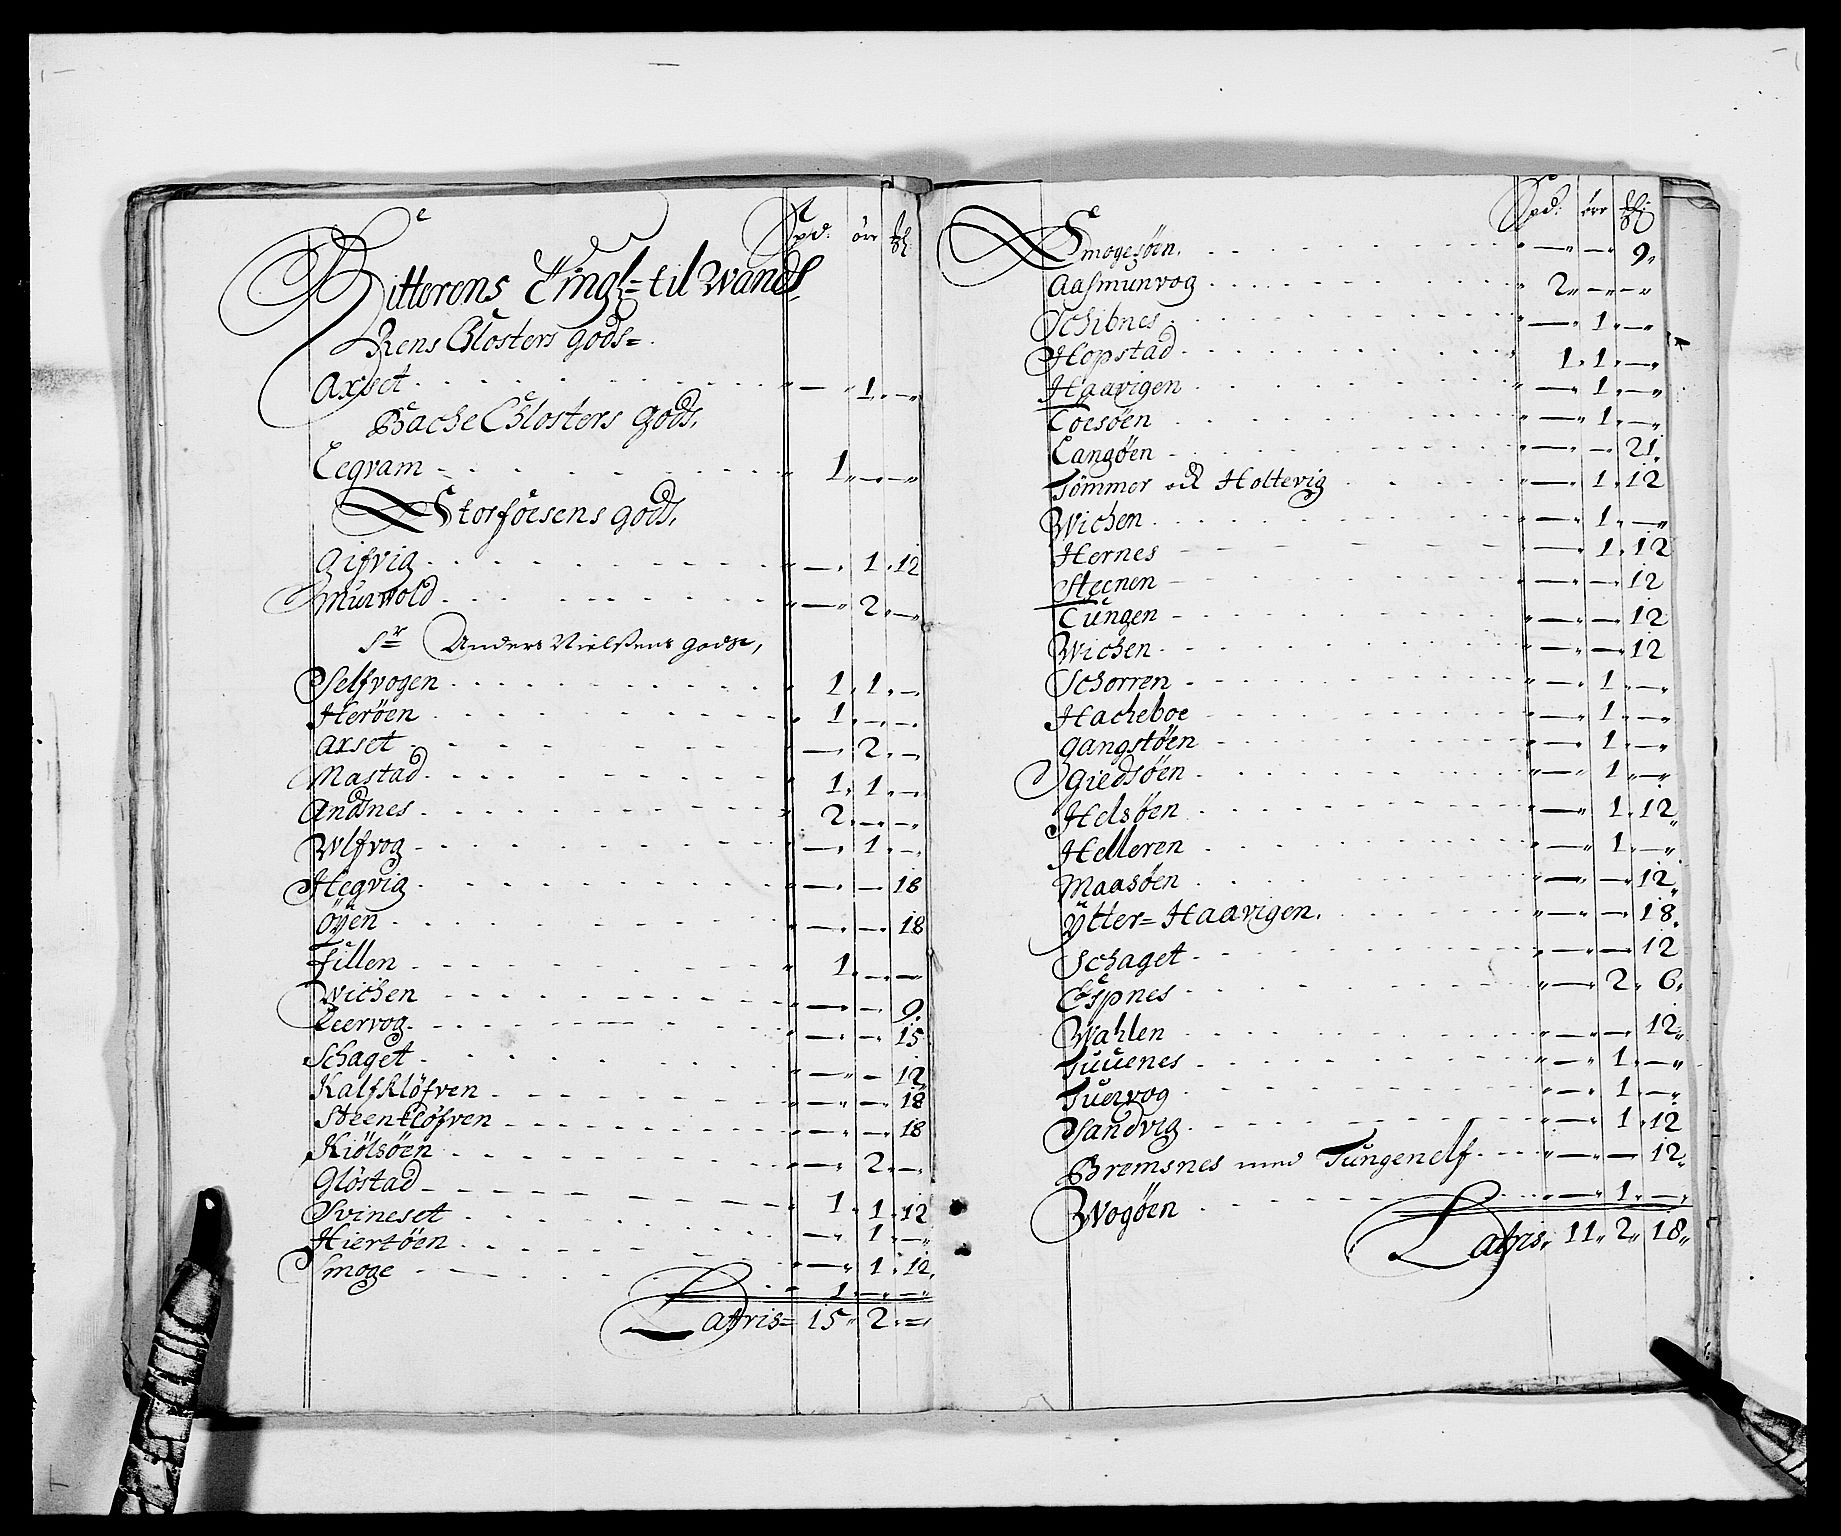 Spd: örr ₥l:
Hitterens Tingl= til Wands
Rens Closters gods=
Axset " — " 1 " — "
Bache Closters gods,
Eegram " 1 " — " — "
Storföesens gods,
Gifvig " — " 1 " 12
Murvold " — " 2 " — "
Sr Anders Nielsens gods,
Selfvogen " 1 " 1 " —
Heröen " 1 " — " —
Axset " — " 2 " —
Mastad " 1 " 1 " —
Andsnes " 2 " — " —
Wlfvog " — " 1 " —
Hegvig " — " — 18
öyen " — " — " 18
Fillen " 1 " — " —
Wichen " — " — " 9
Leervog " — " — " 15
Schaget " — " — 12
Kalfklöfven " — " — " 18
Steenklöfven " — " — " 18
Kiölsöen " — " 2 " —
Glöstad 1 " 1 " 12
Svineset " — " 1 " — "
Hiertöen " — " 1 " 12
Smoge " 1 " — " — "
Latris= 15 " 2 " = "
Spd: örr ₥l:
Smogesöen. " — " — " 9 "
Aasmunvog " 2 " — " — "
Schibnes " — " 1 " — "
Hopstad " 1 " 1 " — "
Haavigen " — " 1 " — "
Toesöen " — " 1 " — "
Langöen " — " — " 21 "
Tömmer od Holtevig " — " 1 " 12
Wichen " — " 1 " — "
Hernes " — " 1 " 12
Steenen " — " — " 12
Tungen " — " — " 12
Wichen " — " — 12
Schorren " — " 1 " — "
Hacheboe " — " 1 " — "
Gangstöen " — " 1 " — "
Giedsöen " — " 1 " — "
Helsöen " — " 1 " 12 "
Helleren " — " 1 " — "
Maasöen " — " — " 12 "
Ytter= Haavigen. " — " — " 18 "
Schaget " — " — " 12
Espnes " — " 2 " 6 "
Wahlen " — " — " 12 "
Tuuenes " — " 1 " — "
Tuervog " — " 1 " — "
Sandvig " — " 1 " 12
Bremsnes med Tungenelf " — " — 12 "
Wogöen " — " 1 " — "
Latris, 11 " 2 " 18 "